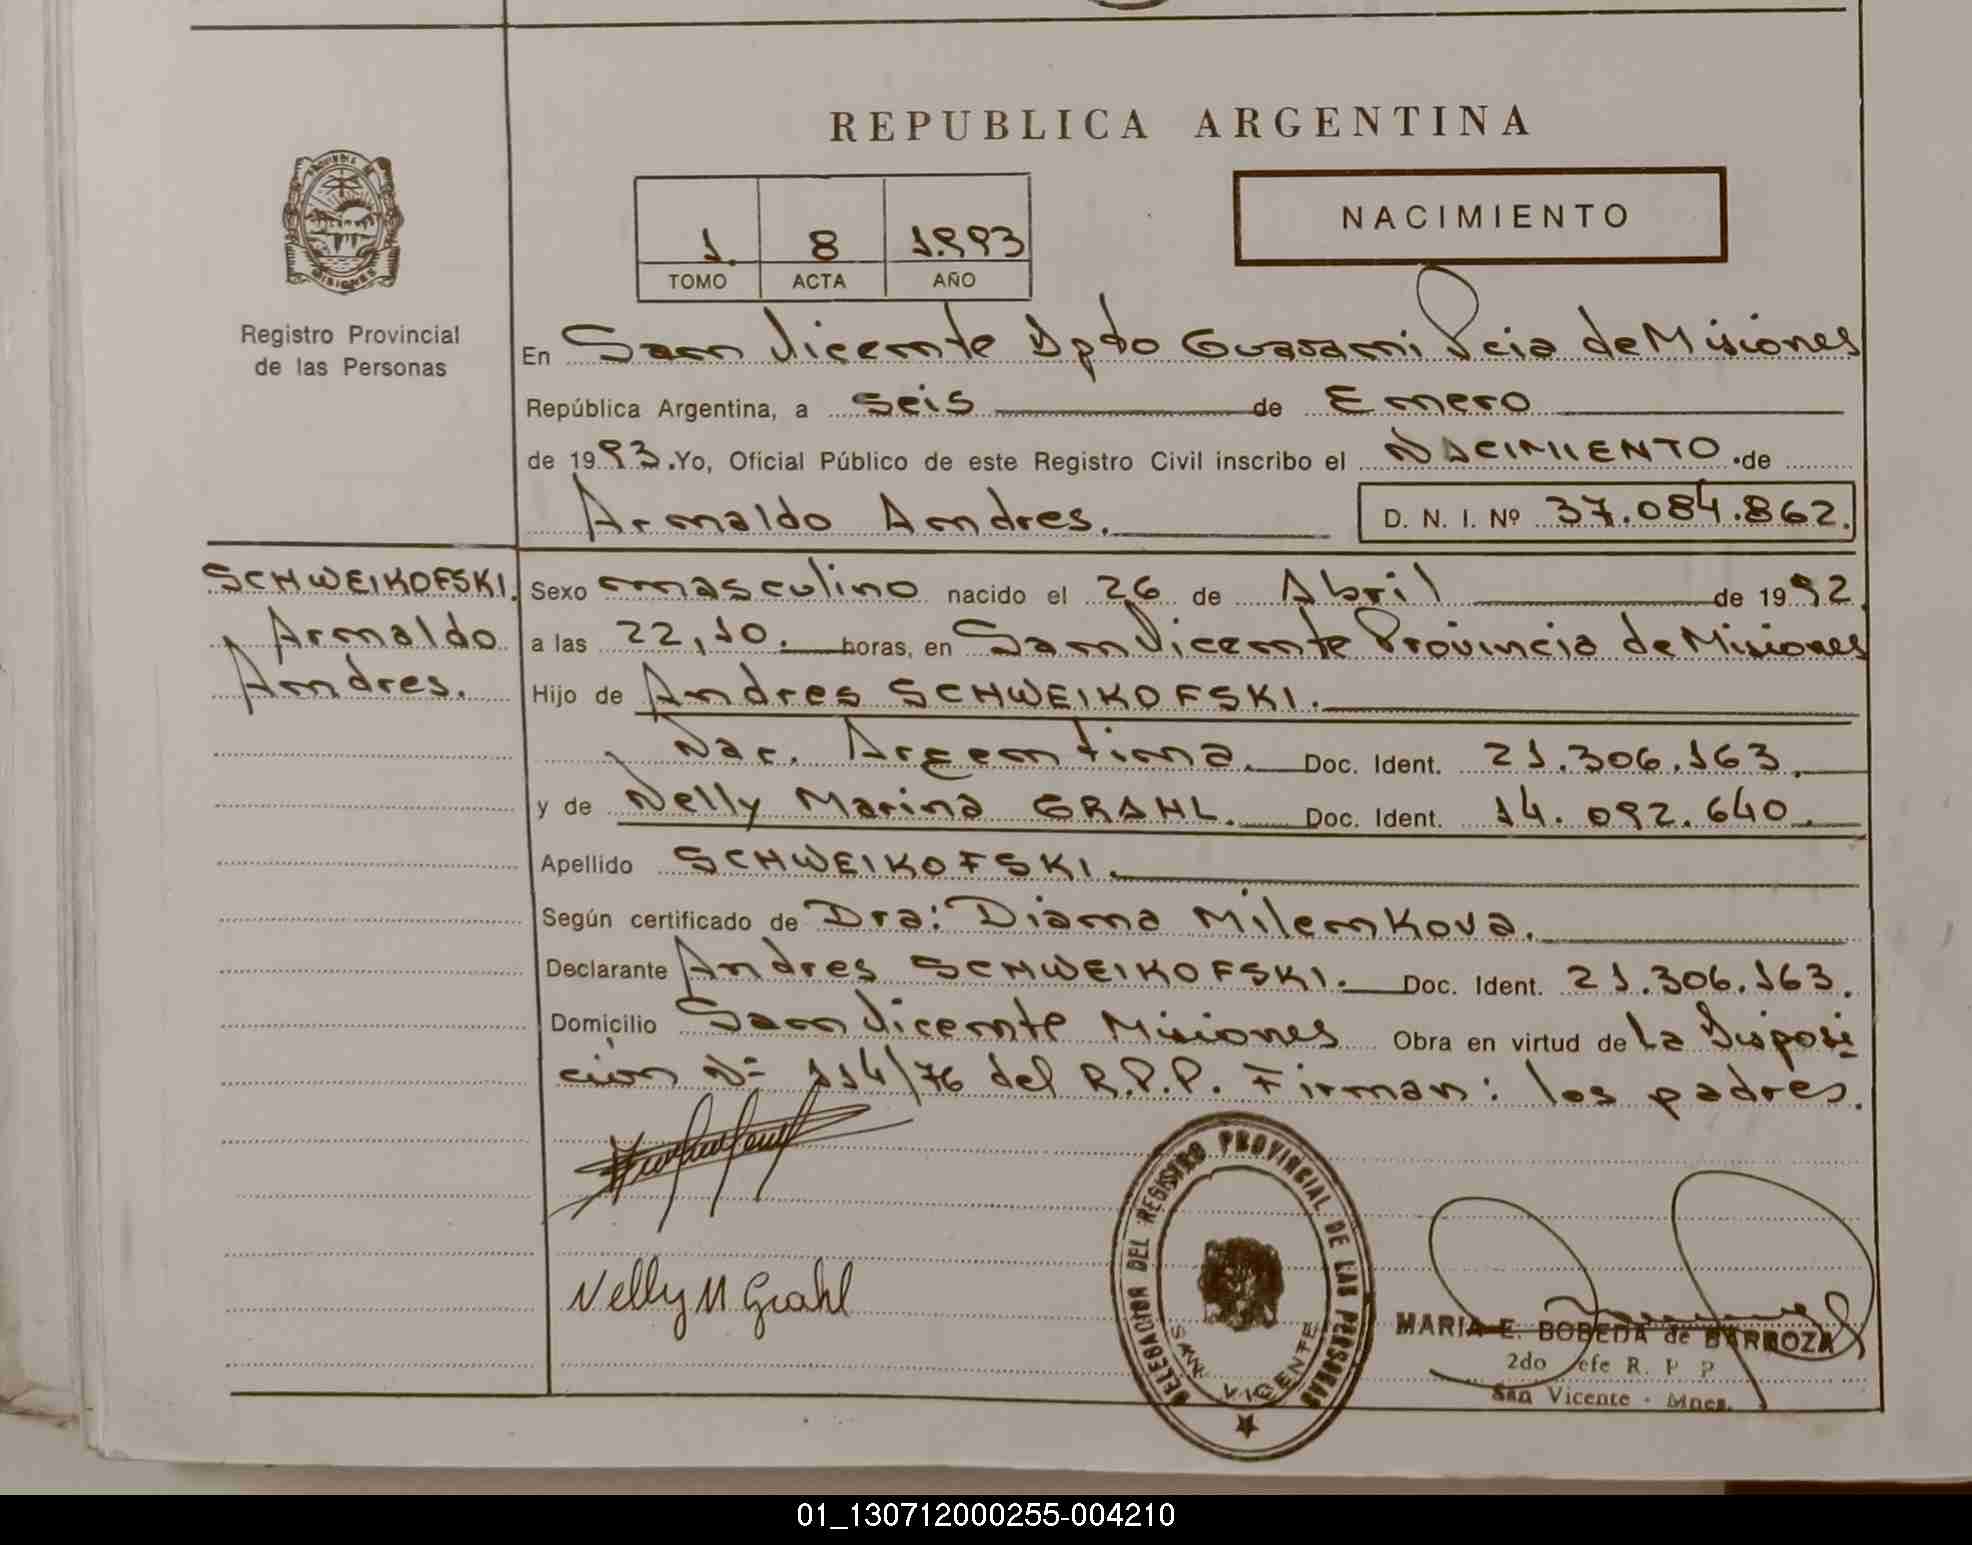 REPUBLICA ARGENTINA
NACIMIENTO
1. 8 1993
TOMO ACTA AÑO
PROVINCIA DE
MISIONES
Registro Provincial
de las Personas
En San Vicente Dpto Guarani Pcia de Misiones
República Argentina, a seis de Enero
de 1993. Yo, Oficial Público de este Registro Civil inscribo el NACIMIENTO. de
Arnaldo Andres. D. N. I. Nº 37.084.862.
SCHWEIKOFSKI.
Arnaldo
Andres.
Sexo masculino nacido el 26 de Abril de 1992.
a las 22,10. horas, en San Vicente Provincia de Misiones
Hijo de Andres SCHWEIKOFSKI.
Nac. Argentina. Doc. Ident. 21.306.163.
y de Nelly Marina GRAHL. Doc. Ident. 14.092.640.
Apellido SCHWEIKOFSKI.
Según certificado de Dra: Diana Milenkova.
Declarante Andres SCHWEIKOFSKI. Doc. Ident. 21.306.163.
Domicilio San Vicente Misiones Obra en virtud de La Disposi
ción Nº 114/76 del R.P.P. Firman: los padres.
Nelly M Grahl
DELEGACION DEL REGISTRO PROVINCIAL DE LAS PERSONAS
SAN VICENTE
MARIA E. BOBEDA de BARBOZA
2do Jefe R. P. P.
San Vicente - Mnes.
01_130712000255-004210